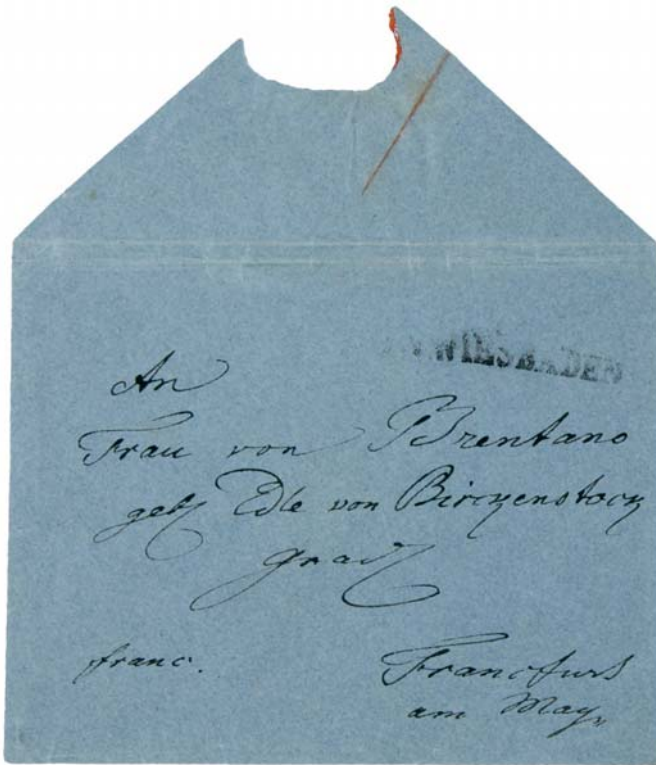 WIESBADEN
An
Frau von Brentano
geb Edle von Birckenstock
franc.
Francfurt
am Mayn